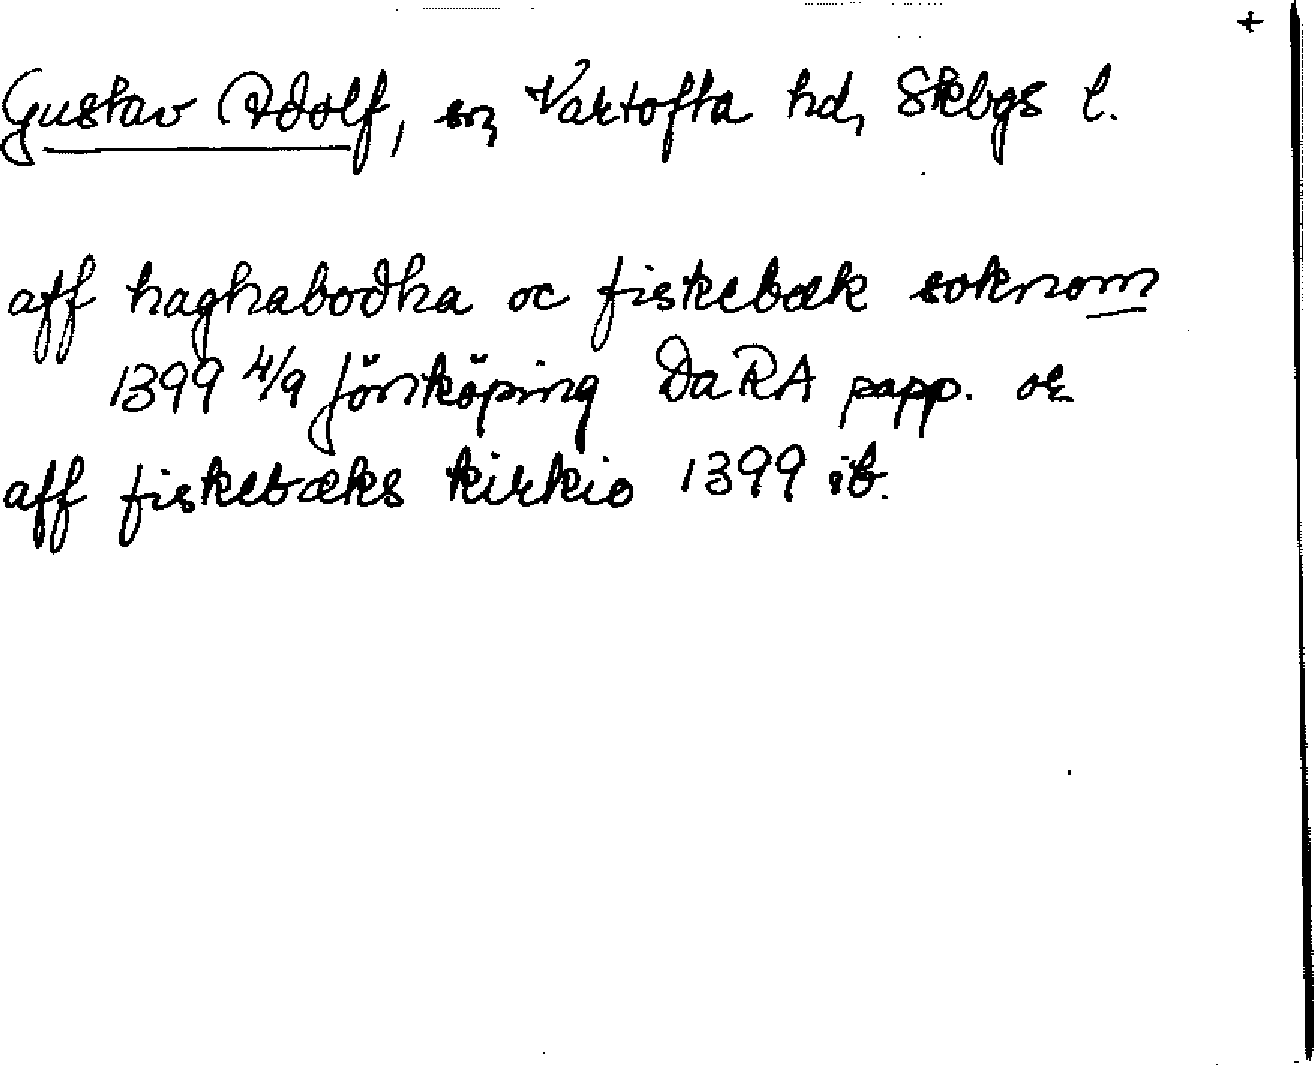 +
Gustav Adolf, sn, Vartofta hd, Skbgs l.
aff haghabodha oc fiskebæk soknom
1399 4/9 Jönköping DaRA papp. or
aff fiskebæks kirkio 1399 ib.